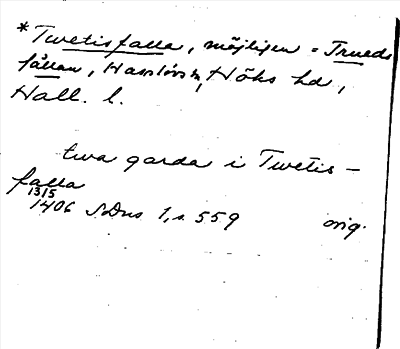 *Twetisfalla, möjligen = Trueds
fållan, Hasslövs sn, Höks hd,
Hall. l.
twa garda i Twetis-
falla
13/5
1406 SDns 1, s. 559 orig.